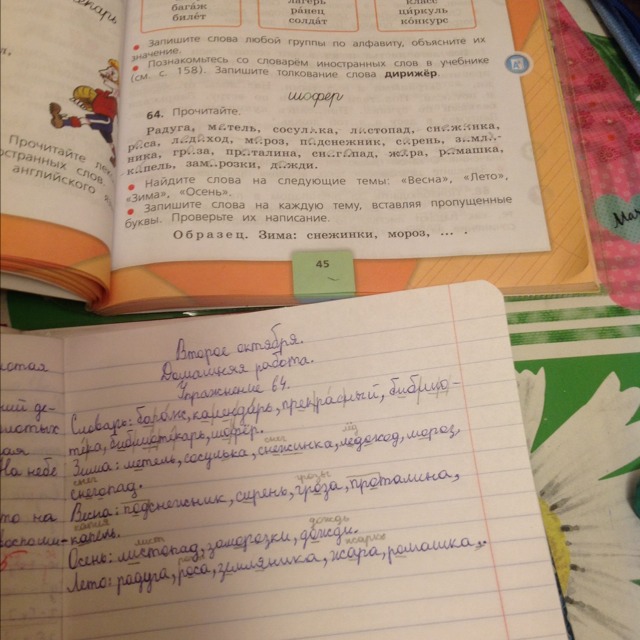 багаж
билет
лагерь
ранец
солдат
класс
циркуль
конкурс
• Запишите слова любой группы по алфавиту, объясните их
значение.
• Познакомьтесь со словарём иностранных слов в учебнике
(см. с. 158). Запишите толкование слова дирижёр.
шофёр
64. Прочитайте.
Радуга, м.тель, сосул.ка, л.стопад, сн.жинка,
р.са, л.доход, м.роз, п.дснежник, с.рень, з.мл.-
ника, гр.за, пр.талина, сн.г.пад, ж.ра, р.машка,
капель, зам.розки, д.жди.
• Найдите слова на следующие темы: «Весна», «Лето»,
«Зима», «Осень».
• Запишите слова на каждую тему, вставляя пропущенные
буквы. Проверьте их написание.
Образец. Зима: снежинки, мороз, ... .
45
Прочитайте
остранных слов
английского
Второе октября.
Домашняя работа.
Упражнение 64.
Словарь: багаж, календарь, прекрасный, библио-
тека, библиотекарь, шофёр.
снег лёд
Зима: метель, сосулька, снежинка, ледоход, мороз,
снег
снегопад.
грозы
Весна: подснежник, сирень, гроза, проталина,
капель.
лист дождь
Осень: листопад, заморозки, дожди.
жарко
Лето: радуга, роса, земляника, жара, ромашка.
истая
ний де-
истых
ная
На небе
что на